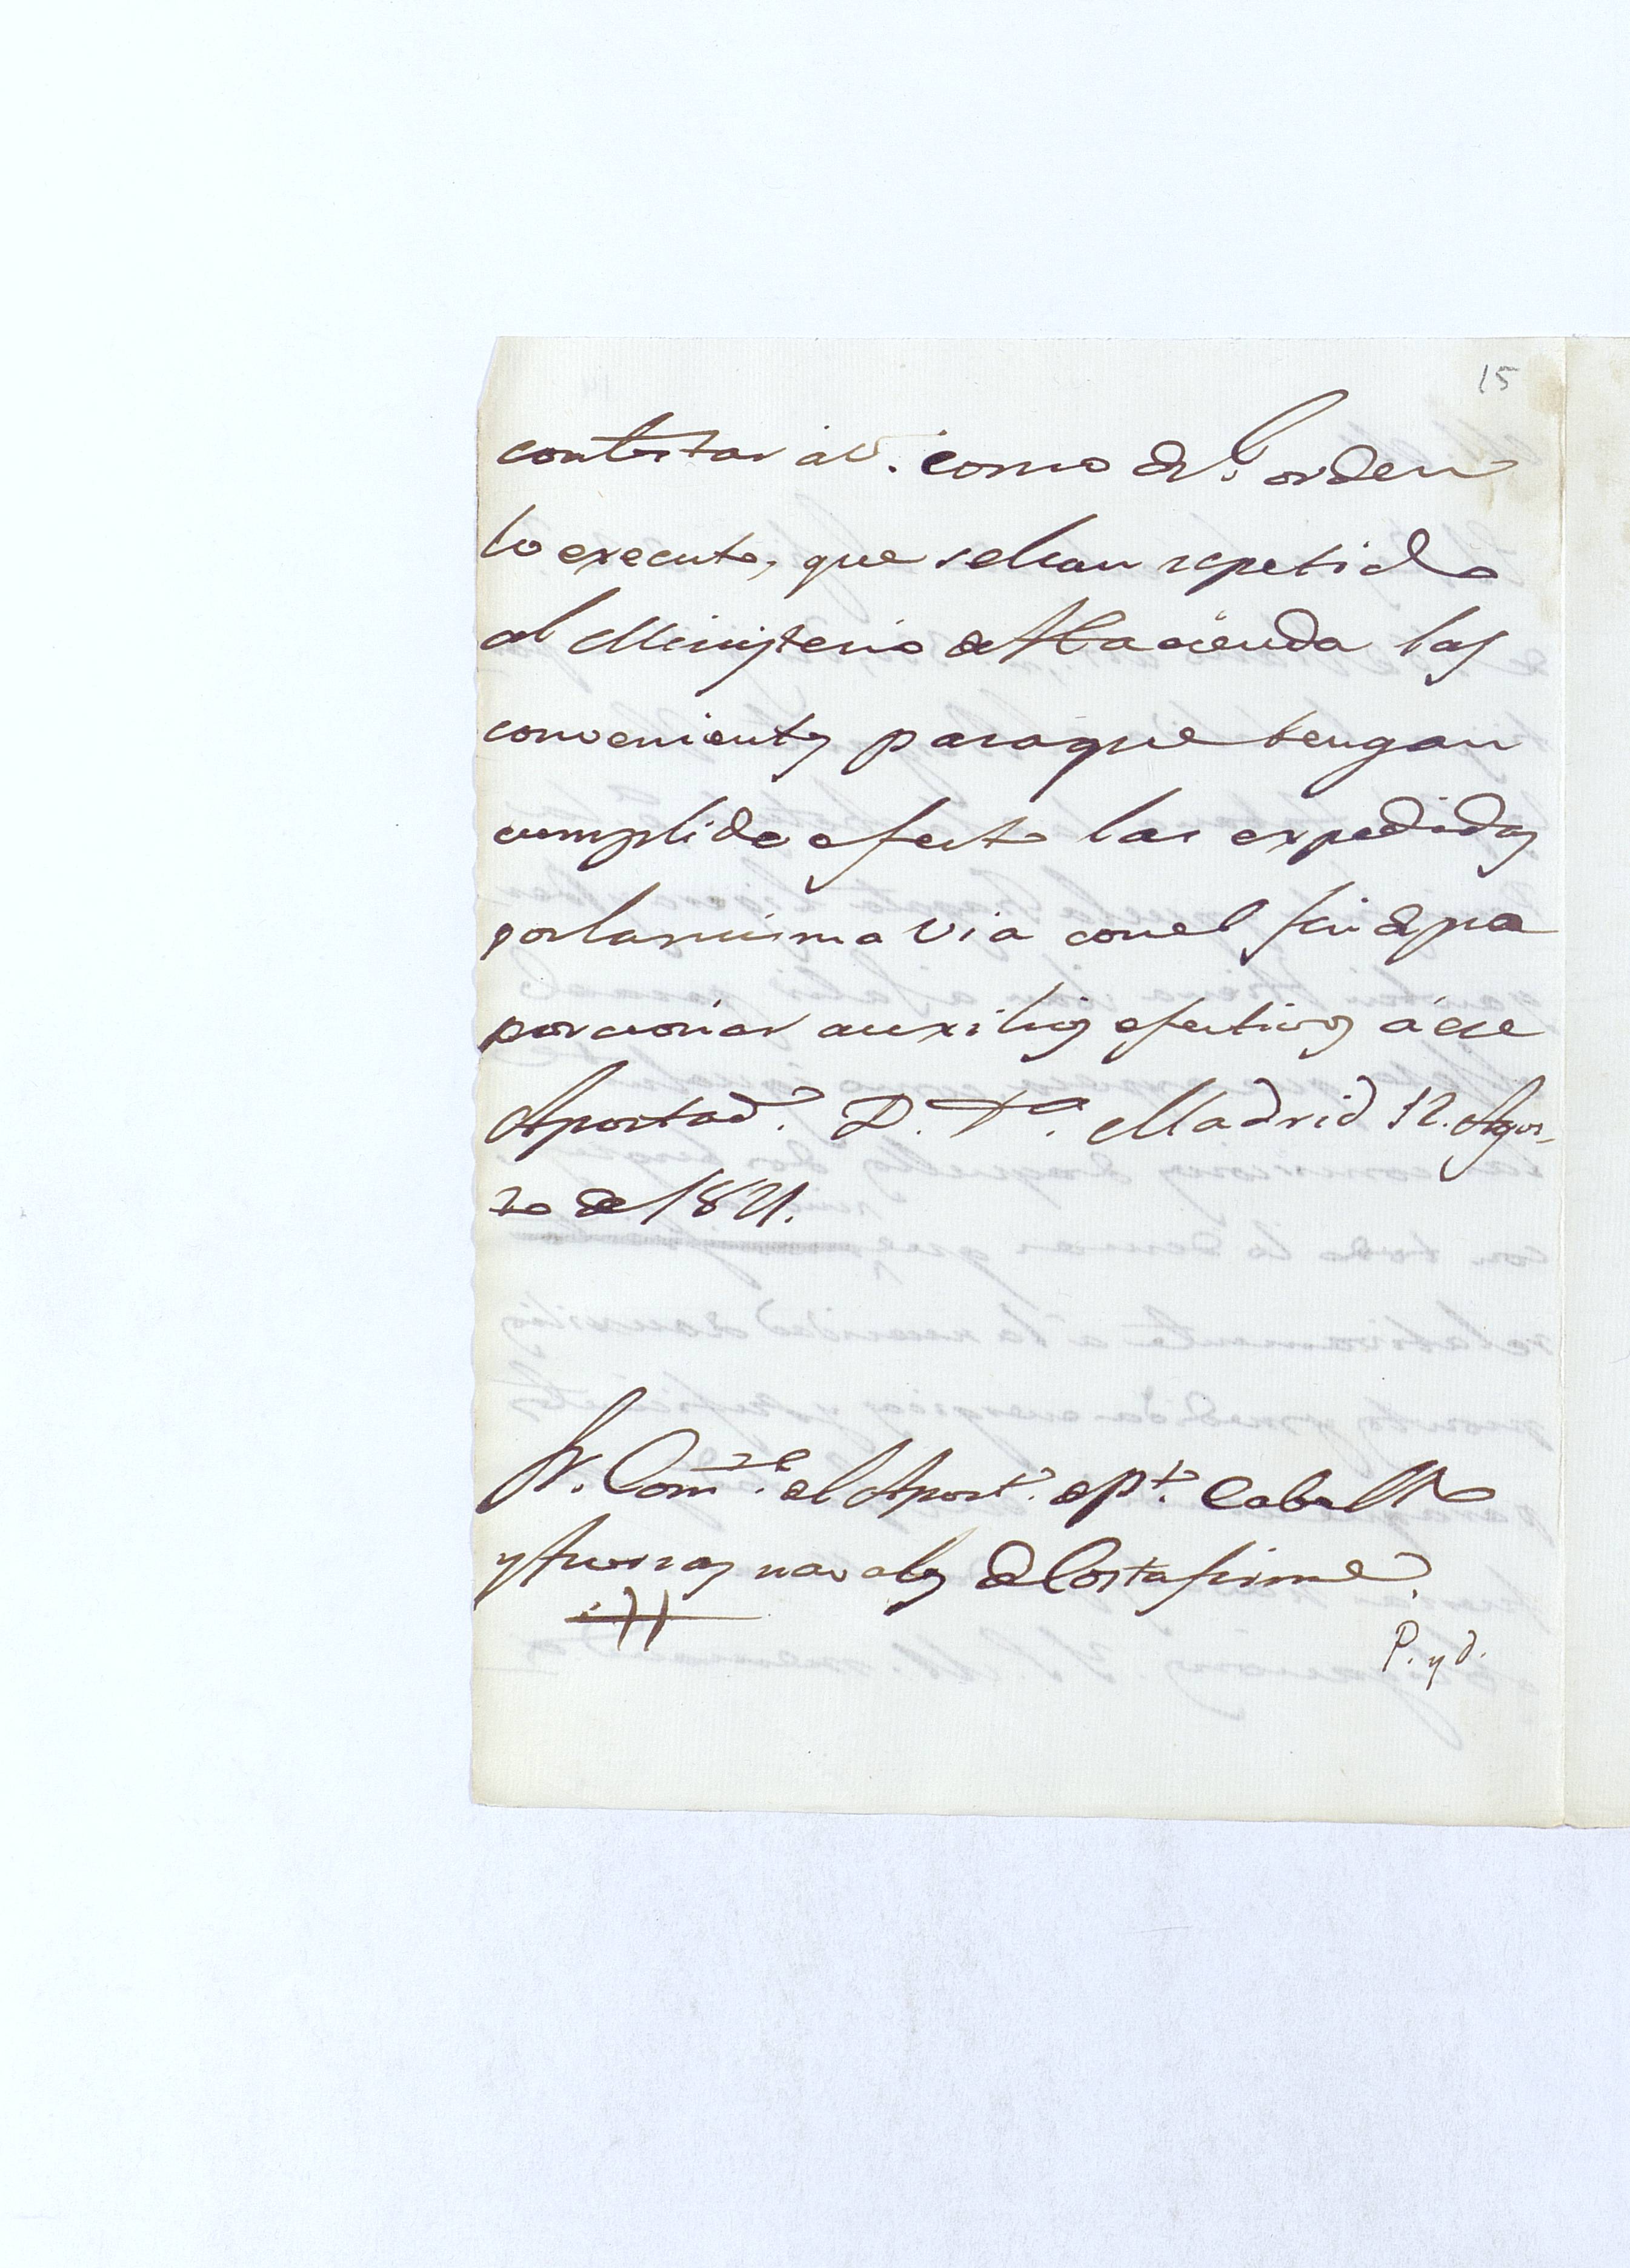 15
contestar á V. como de Rl. orden
lo executo, que se han repetido
al Ministerio de Hacienda las
convenientes para que tengan
cumplido efecto las expedidas
por la misma via con el fin de pro
porcionar auxilios efectivos á ese
Apostado. D. Ga. Madrid 12. Agos-
to de 1821.
Sr. Comte. del Apostº. de Pto. Cabello
y fuerzas navales de Costafirme.
P. y d.